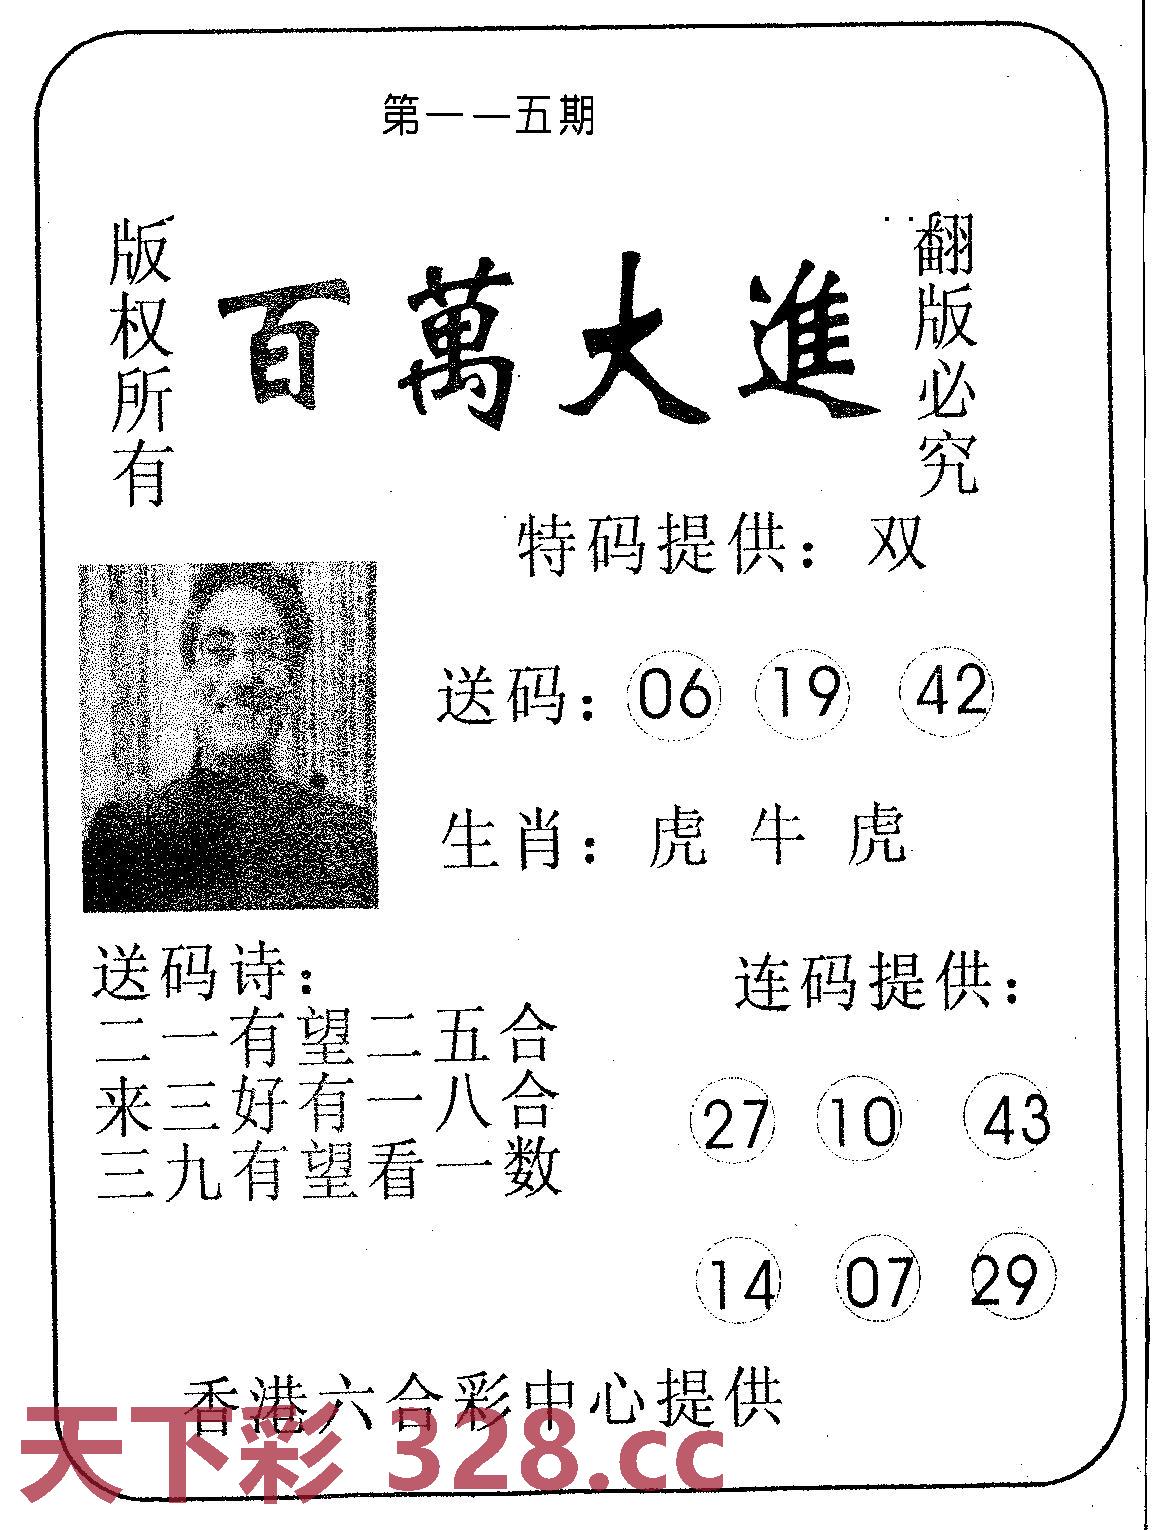 第一一五期
版权所有
百萬大進
翻版必究
特码提供：双
送码：06 19 42
生肖：虎 牛 虎
送码诗：
二一有望二五合
来三好有一八合
三九有望看一数
连码提供：
27 10 43
14 07 29
香港六合彩中心提供
天下彩 328.cc